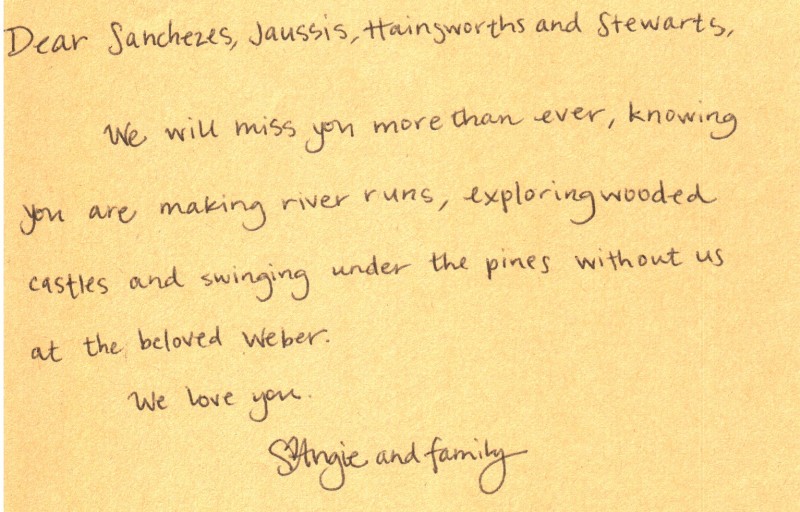 Dear Sanchezes, Jaussis, Hainsworths and Stewarts,
We will miss you more than ever, knowing
you are making river runs, exploring wooded
castles and swinging under the pines without us
at the beloved Weber.
We love you.
Angie and family